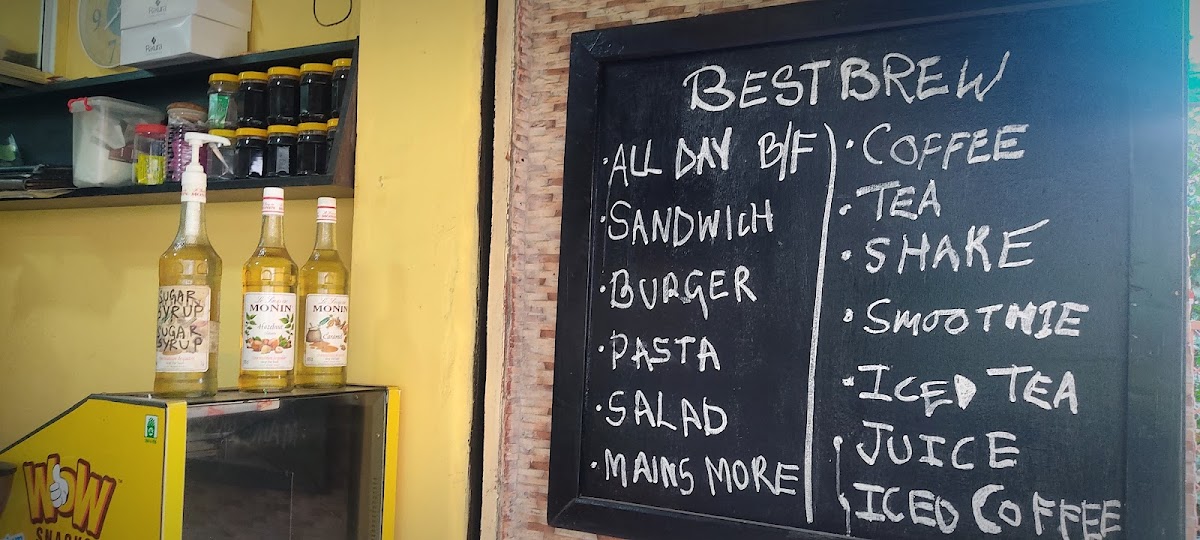 Rakura
Rakura
SUGAR
SYRUP
SUGAR
SYRUP
MONIN
Hazelnut
MONIN
Caramel
WOW
SNACKS
BEST BREW
· ALL DAY B/F
· SANDWICH
· BURGER
· PASTA
· SALAD
· MAINS MORE
· COFFEE
· TEA
· SHAKE
· SMOOTHIE
· ICED TEA
JUICE
ICED COFFEE